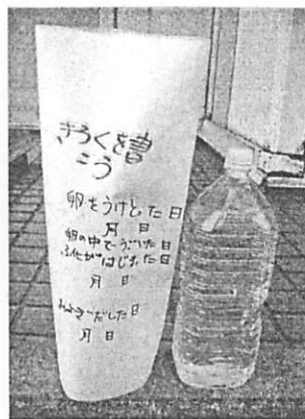 きろくを書
こう
卵をうけとった日
月 日
卵の中でうごいた日
ふ化がはじまった日
月 日
およぎだした日
月 日